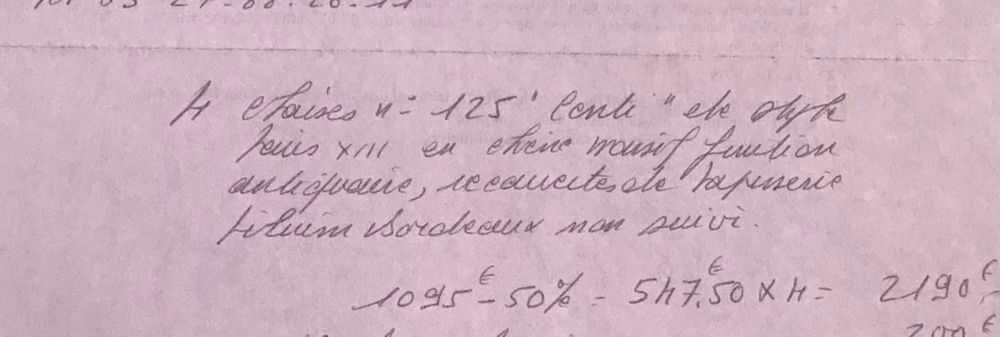 4 chaises n= 125 "Conti" de style
Louis XIII en chêne massif finition
antiquaire, recouvertes de tapisserie
Bordeaux non suivi.
1095€ - 50% = 547,50€ x 4 = 2190€
200€